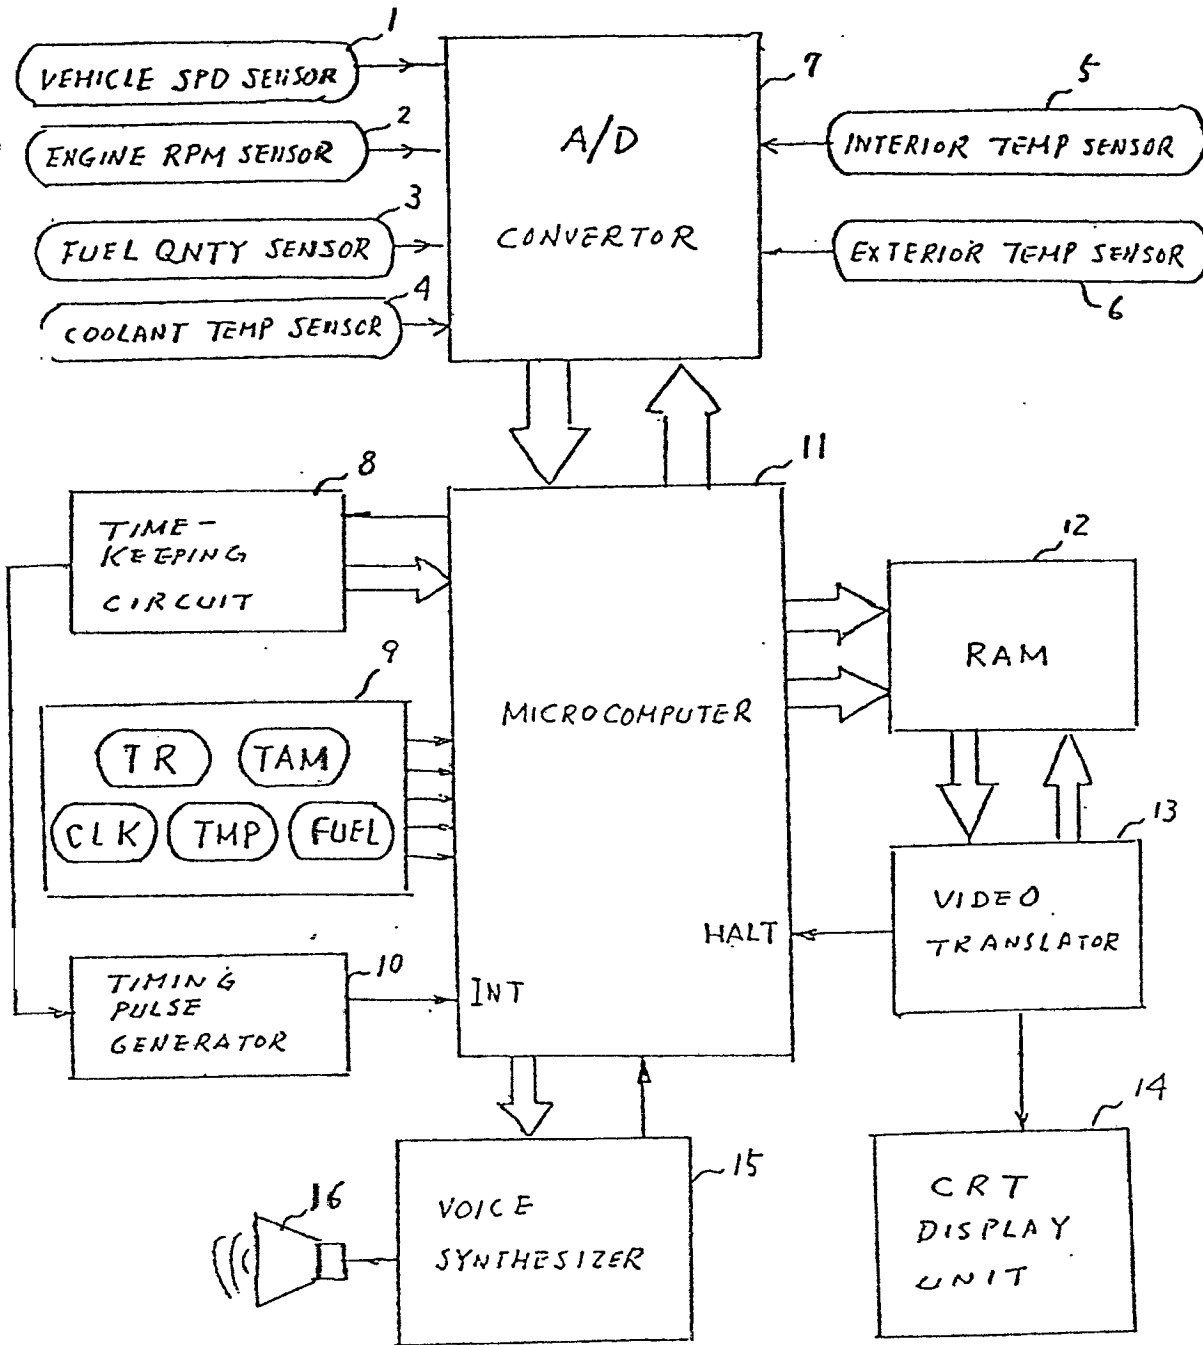 1
VEHICLE SPD SENSOR
2
ENGINE RPM SENSOR
3
FUEL QNTY SENSOR
4
COOLANT TEMP SENSOR
A/D
CONVERTOR
7
5
INTERIOR TEMP SENSOR
EXTERIOR TEMP SENSOR
6
8
TIME-
KEEPING
CIRCUIT
9
TR
TAM
CLK
TMP
FUEL
TIMING
PULSE
GENERATOR
10
11
MICROCOMPUTER
INT
HALT
12
RAM
13
VIDEO
TRANSLATOR
14
CRT
DISPLAY
UNIT
15
VOICE
SYNTHESIZER
16